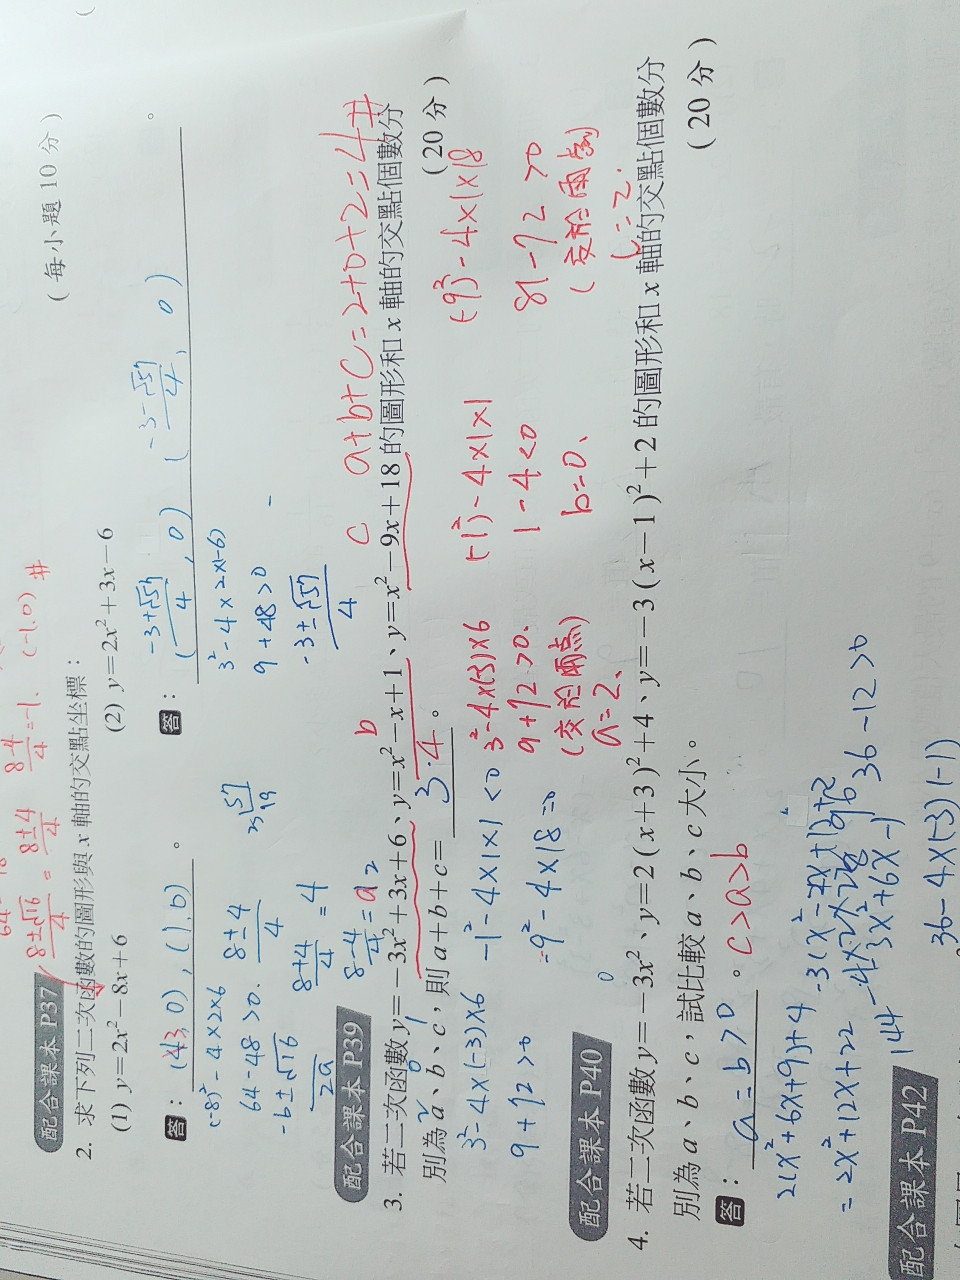 64-
8±√16/4 = 8±4/4  8-4/4=-1、(-1,0) #
配合課本 P37
2. 求下列二次函數的圖形與 x 軸的交點坐標：
(每小題 10 分)
(1) y=2x²-8x+6
(2) y=2x²+3x-6
答： (43,0),(1,0) 。
答： (-3+√57/4, 0) (-3-√57/4, 0) 。
(-8)²-4×2×6
64-48>0. 8±4/4
-b±√16/2a
8+4/4=4
8-4/4=
3)57
19
3²-4×2×(-6)
9+48>0
-3±√57/4
配合課本 P39
a b c a+b+c=2+0+2=4#
3. 若二次函數 y=-3x²+3x+6、y=x²-x+1、y=x²-9x+18 的圖形和 x 軸的交點個數分
別為 a、b、c，則 a+b+c= 3.4 。
(20 分)
3²-4×(-3)×6
9+72>0
-1²-4×1×1<0
=9²-4×18=0
3²-4×(-3)×6
9+72>0、
(交於兩点)
a=2、
(-1)²-4×1×1
1-4<0
b=0、
(-9)²-4×1×18
81-72>0
(交於兩點)
c=2.
配合課本 P40
4. 若二次函數 y=-3x²、y=2(x+3)²+4、y=-3(x-1)²+2 的圖形和 x 軸的交點個數分
別為 a、b、c，試比較 a、b、c 大小。
(20 分)
答： a=b>0 。 c>a>b
2(x²+6x+9)+4
=2x²+12x+22
-3(x²-2x+1)+2
-3x²+6x-1
144-4×2×22
36-12>0
36-4×(-3)(-1)
配合課本 P42